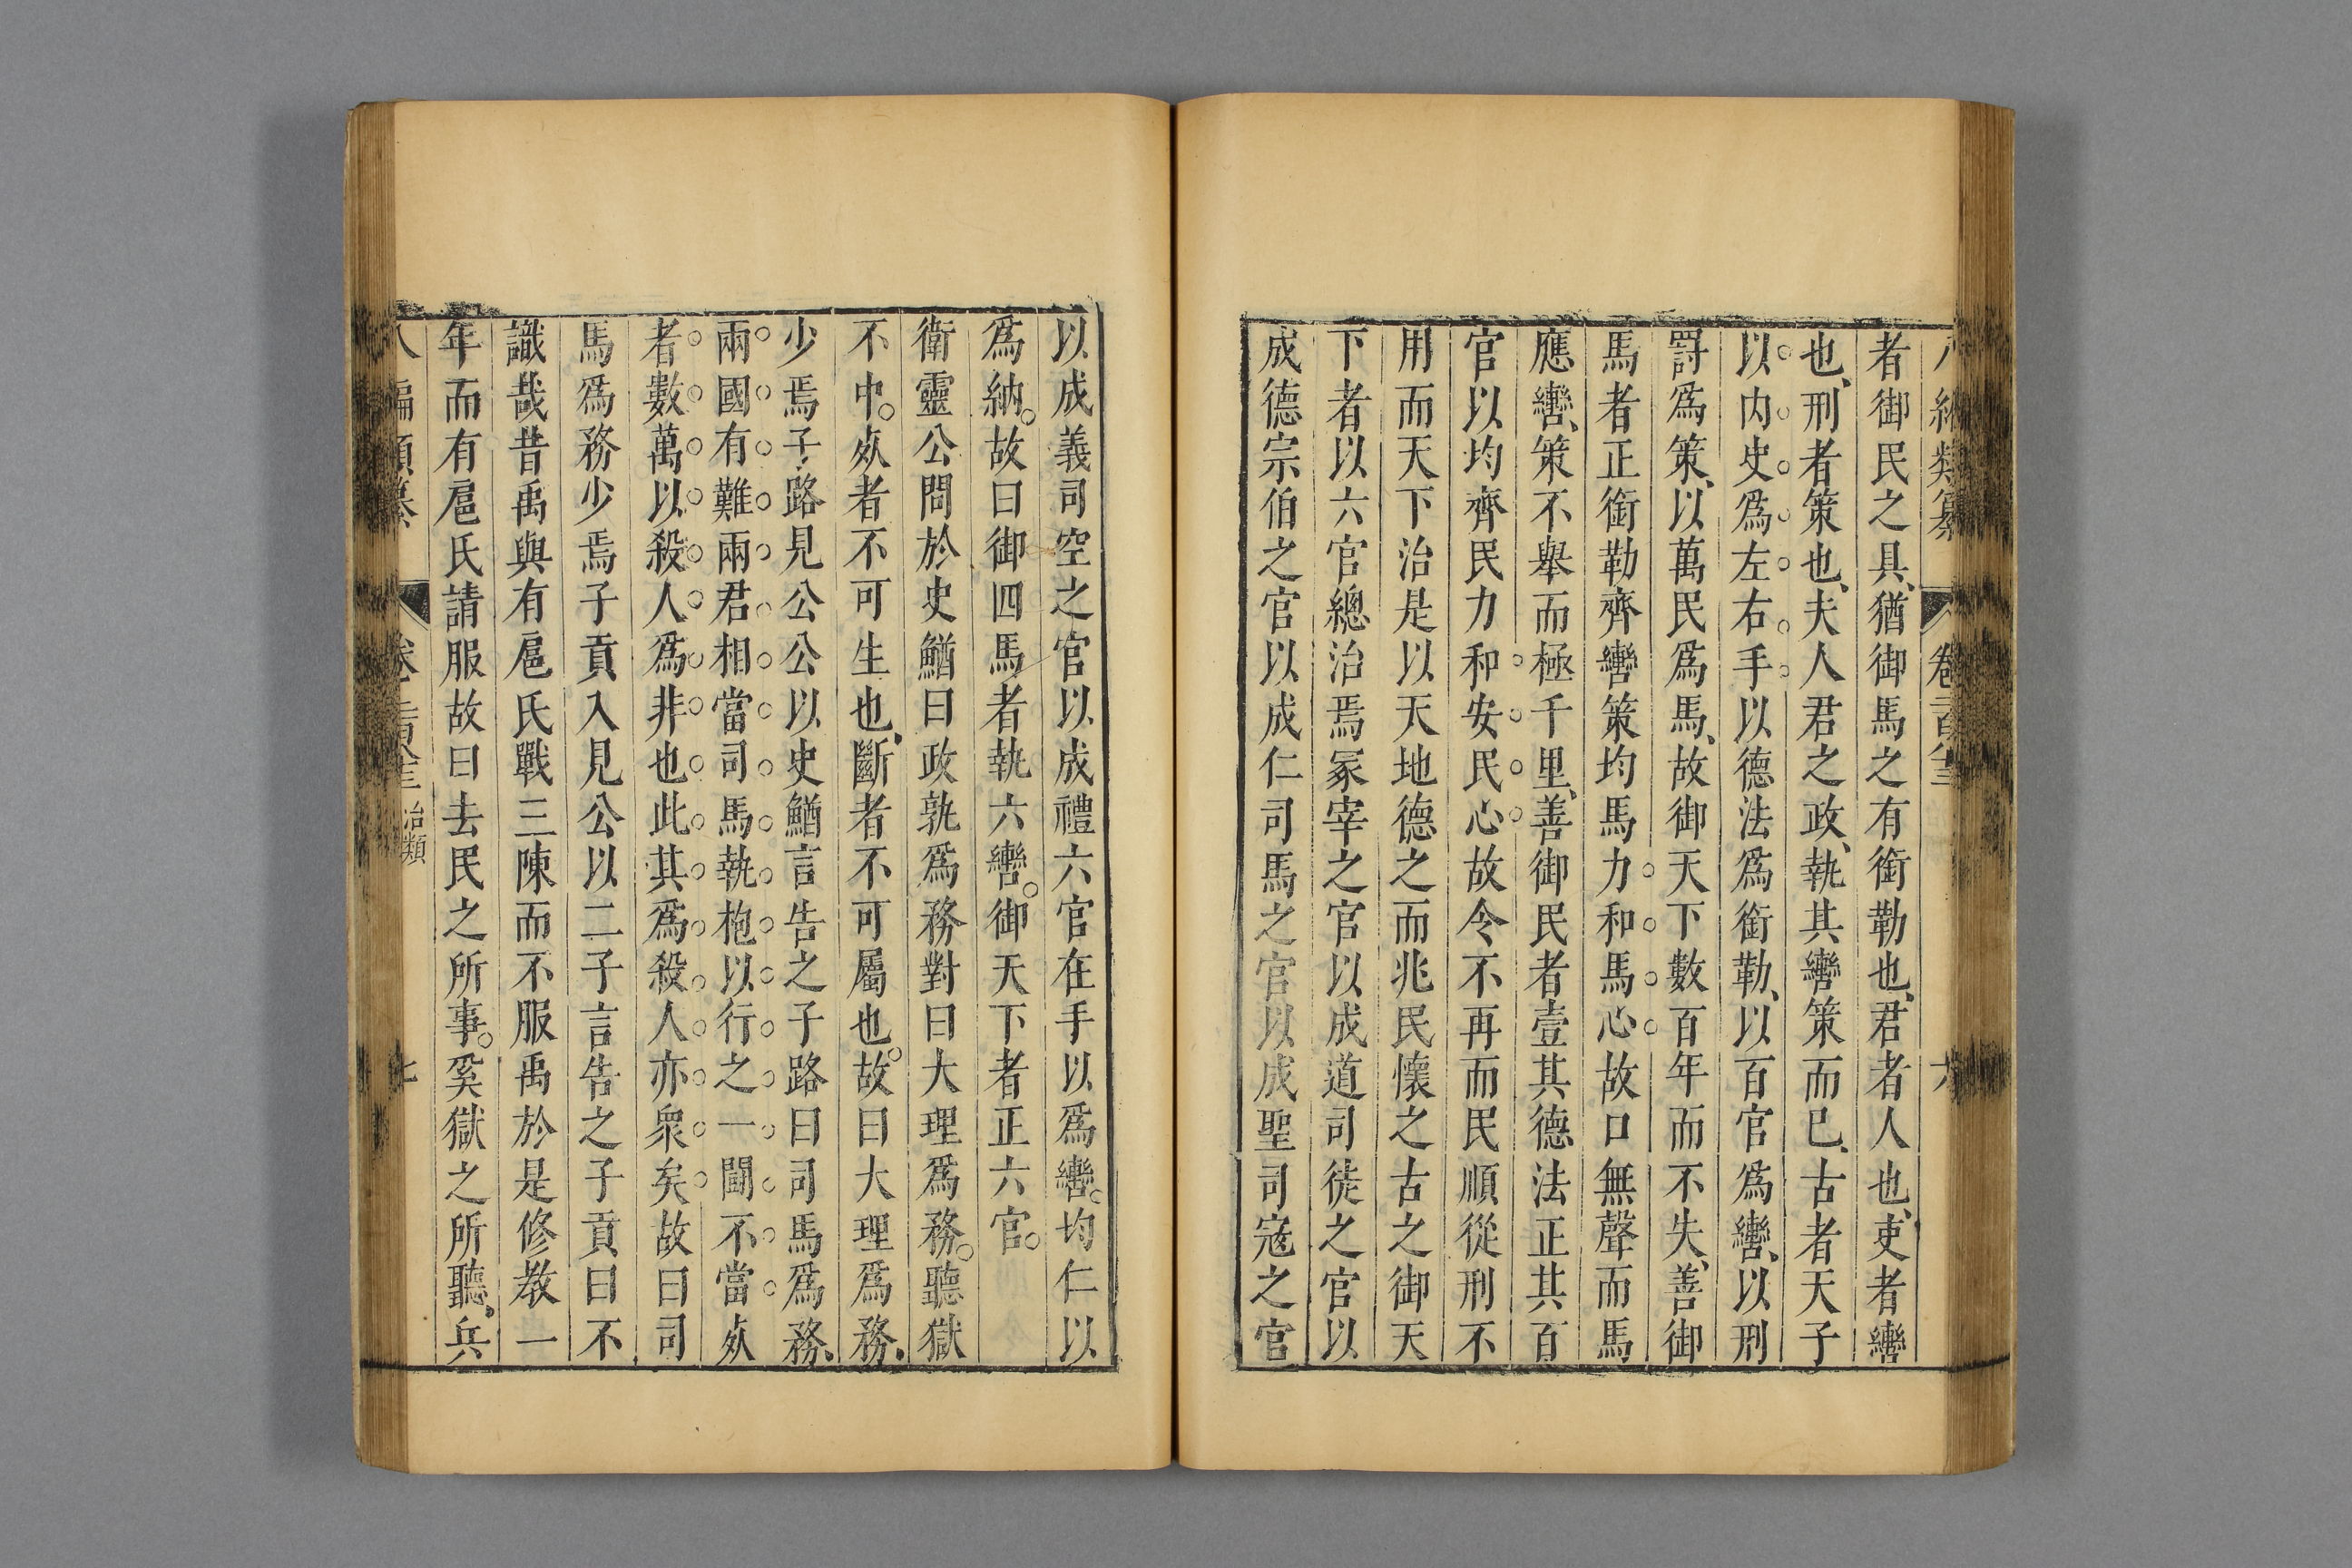 八編類纂 卷二百八十三 六
者御民之具、猶御馬之有銜勒也、君者人也、吏者轡
也、刑者策也、夫人君之政、執其轡策而已、古者天子
以内史爲左右手以德法爲銜勒、以百官爲轡、以刑
罸爲策、以萬民爲馬、故御天下數百年而不失、善御
馬者正銜勒齊轡策均馬力和馬心故口無聲而馬
應轡、策不舉而極千里、善御民者壹其德法正其百
官以均齊民力和安民心故令不再而民順從刑不
用而天下治是以天地德之而兆民懷之古之御天
下者以六官總治焉冢宰之官以成道司徒之官以
成德宗伯之官以成仁司馬之官以成聖司寇之官
以成義司空之官以成禮六官在手以爲轡。均仁以
爲納。故曰御四馬者執六轡。御天下者正六官。
衛靈公問於史鰌曰政孰爲務對曰大理爲務。聽獄
不中。𣦸者不可生也、斷者不可屬也。故曰大理爲務、
少焉子路見公公以史鰌言告之子路曰司馬爲務、
兩國有難兩君相當司馬執枹以行之一鬭不當𣦸
者數萬以殺人爲非也此其爲殺人亦衆矣故曰司
馬爲務少焉子貢入見公以二子言告之子貢曰不
識哉昔禹與有扈氏戰三陳而不服禹於是修教一
年而有扈氏請服故曰去民之所事。奚獄之所聽、兵
八編類纂 卷二百八十三 治類 七